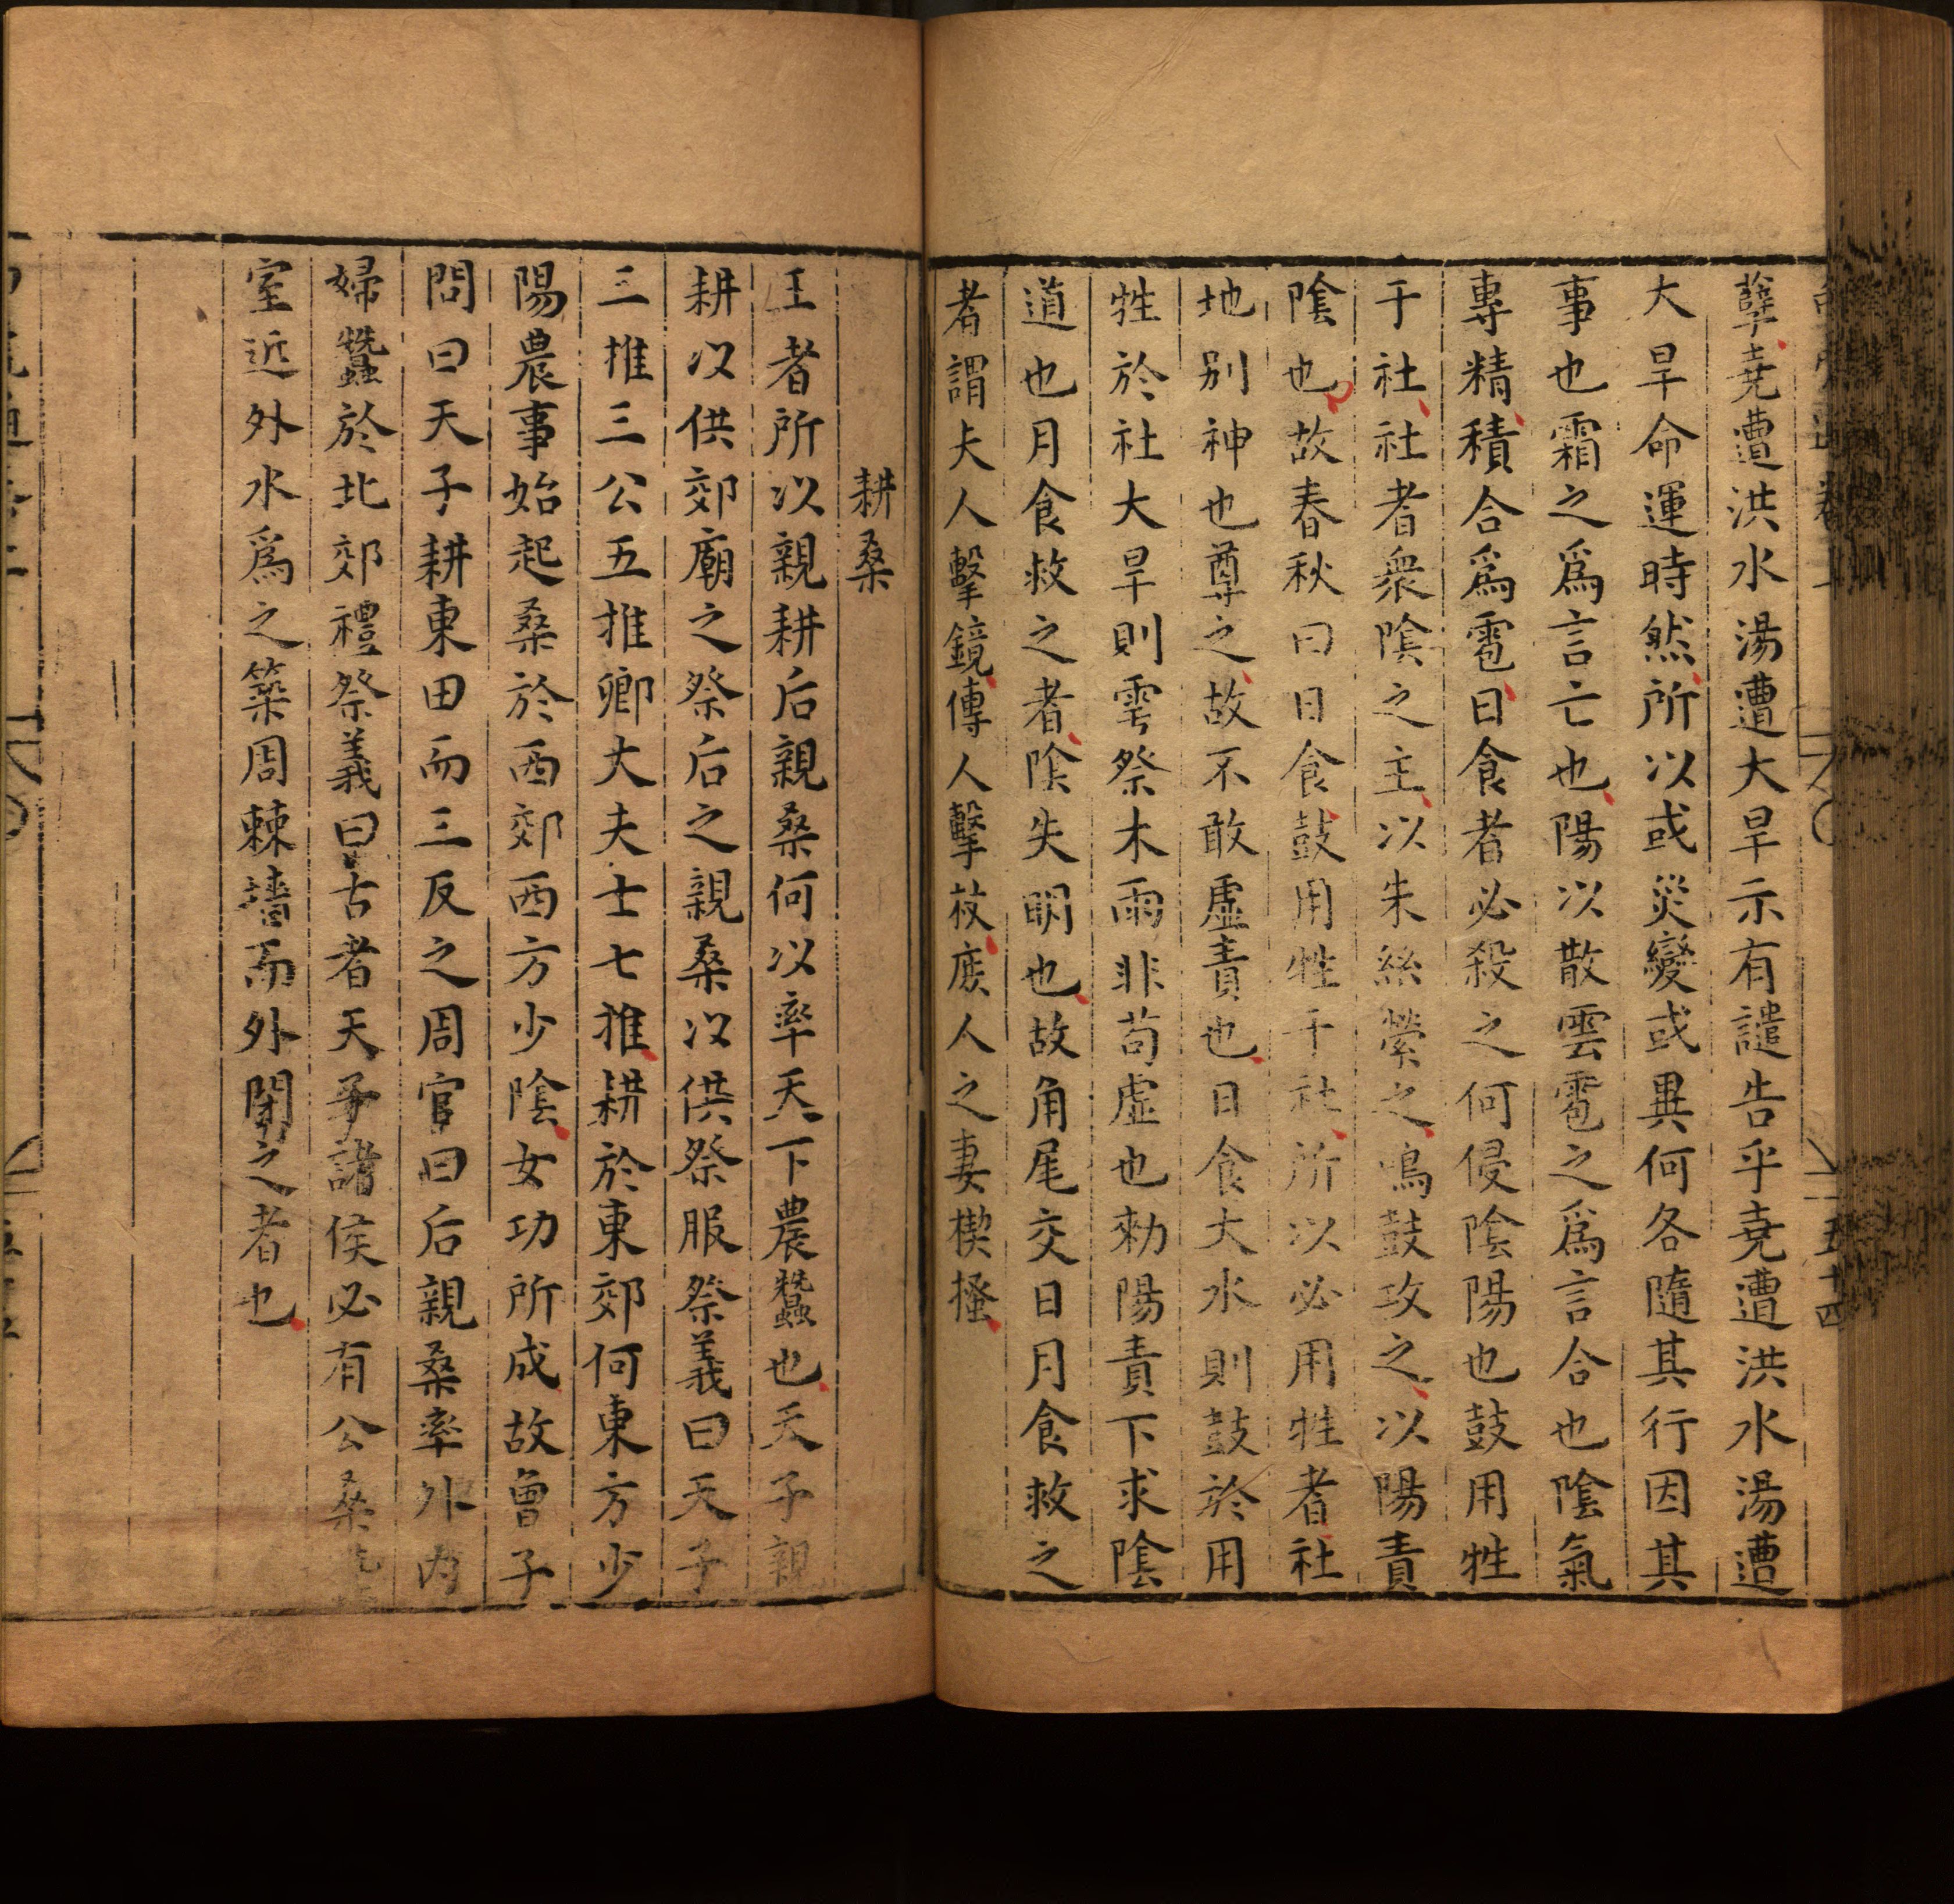 孽堯遭洪水湯遭大旱示有譴告乎堯遭洪水湯遭
大旱命運時然所以或災變或異何各隨其行因其
事也霜之爲言亡也陽以散雲雹之爲言合也陰氣
專精積合爲雹日食者必殺之何侵陰陽也鼓用牲
于社社者衆陰之主以朱絲縈之鳴鼓攻之以陽責
陰也故春秋曰日食鼓用牲于社所以必用牲者社
地别神也尊之故不敢虛責也日食大水則鼓於用
牲於社大旱則雩祭木雨非苟虛也勑陽責下求陰
道也月食救之者陰失明也故角尾交日月食救之
者謂夫人擊鏡傳人擊杖庻人之妻楔搔
耕桑
王者所以親耕后親桑何以率天下農蠶也天子親
耕以供郊廟之祭后之親桑以供祭服祭義曰天子
三推三公五推卿大夫士七推耕於東郊何東方少
陽農事始起桑於西郊西方少陰女功所成故曾子
問曰天子耕東田而三反之周官曰后親桑率外内
婦蠶於北郊禮祭義曰古者天子諸侯必有公桑
室近外水爲之築周棘墻而外閉之者也
五十四